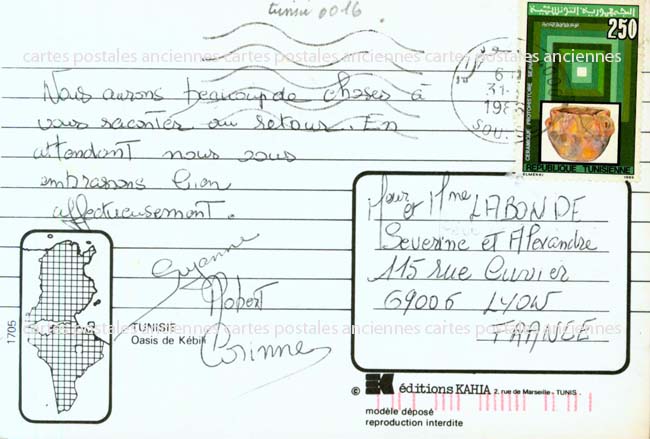 tunisi 0016
cartes postales anciennes cartes postales anciennes cartes postales anciennes
Nous aurons beaucoup de choses à
vous raconter au retour. En
attendant nous vous
embrassons bien
affectueusement.
Suzanne
Robert
Corinne
1705
TUNISIE
Oasis de Kébili
cartes postales anciennes cartes postales anciennes cartes postales anciennes
الجمهورية التونسية
250
CERAMIQUE PROTOHISTOIRE
REPUBLIQUE TUNISIENNE
6
31
198
SOU
Mr et Mme LABONDE
Severine et Alexandre
115 rue Cuvier
69006 LYON
FRANCE
© éditions KAHIA 2, rue de Marseille - TUNIS.
modèle déposé
reproduction interdite